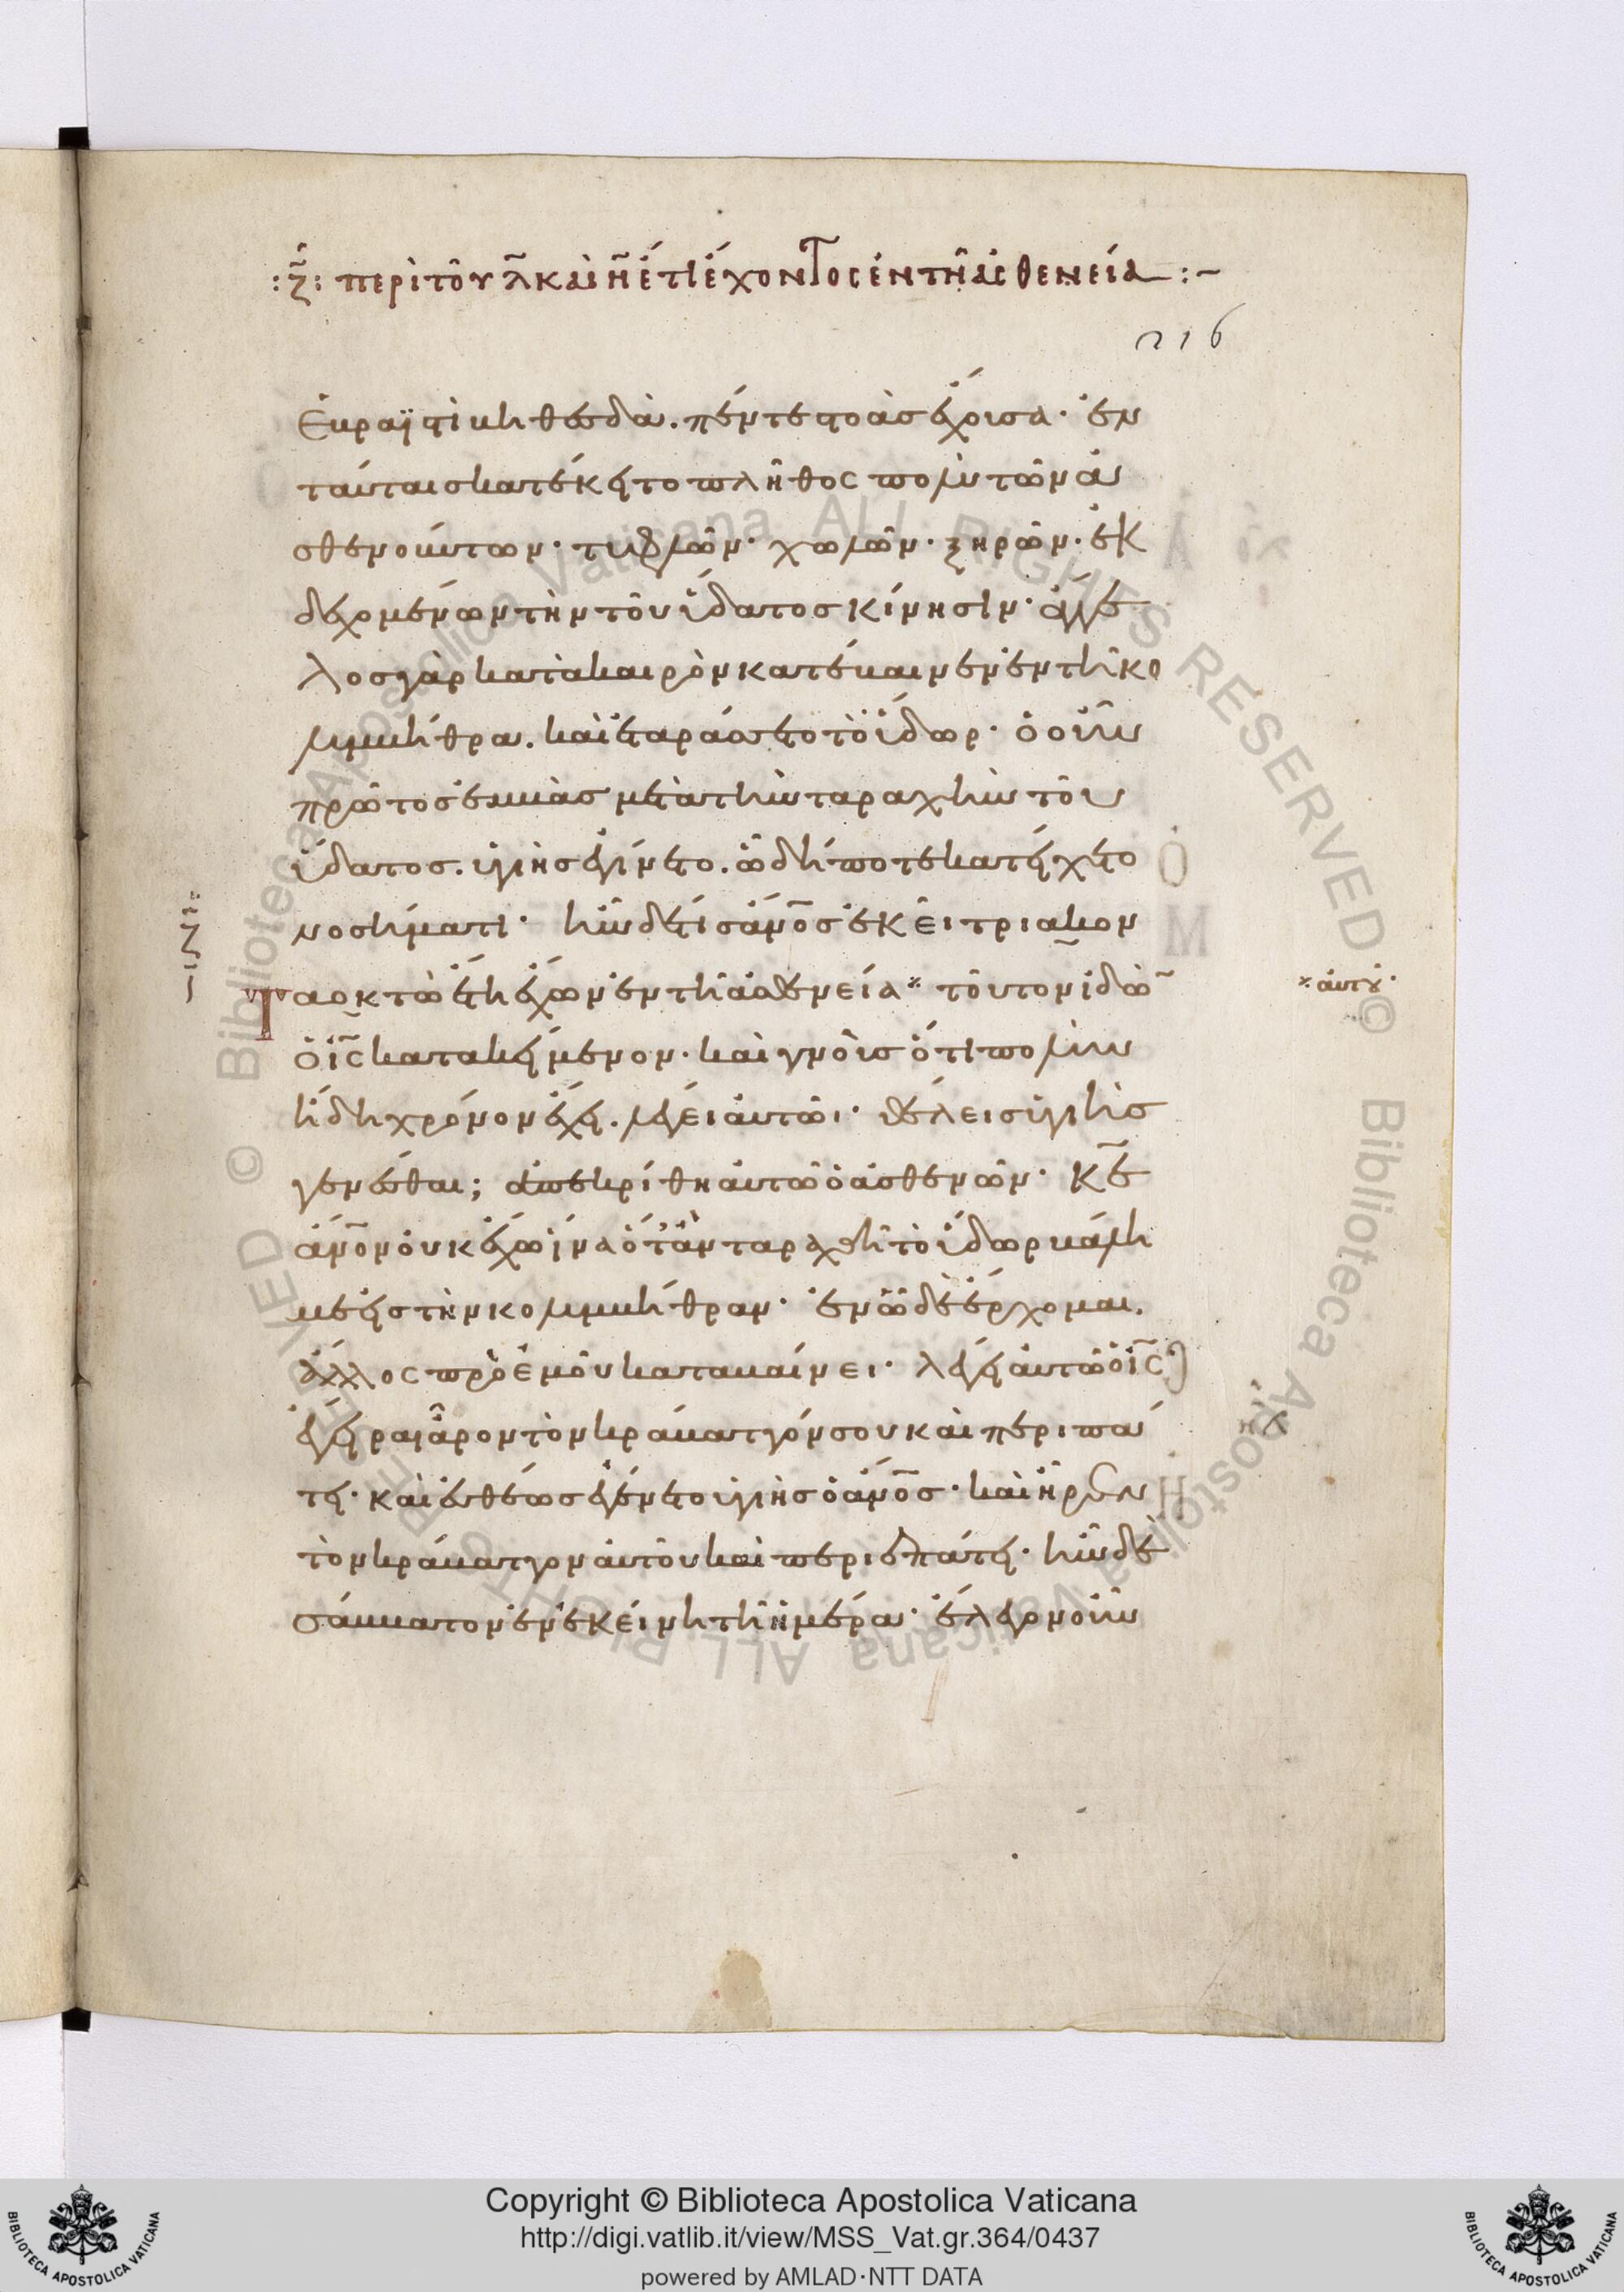 :ζ: περὶ τοῦ λ̅ καὶ η̅ ἔτι ἔχοντος ἐν τῆ ἀσθενεία :~
216
Ἑβραϊστὶ βηθεσδὰ. πέντε στοὰσ ἔχουσα· ἐν
ταύταισ κατέκειτο πλῆθος πολὺ τῶν ἀ
σθενούντων· τυφλῶν· χωλῶν· ξηρῶν· ἐκ
δεχομένων τὴν τοῦ ὕδατοσ κίνησιν· ἄγγε
λοσ γὰρ κατὰ καιρὸν κατέβαινεν ἐν τῆ κο
λυμβήθρα. καὶ ἐταράσσετο τὸ ὕδωρ· ὁ οὖν
πρῶτοσ ἐμβὰσ μετὰ τὴν ταραχὴν τοῦ
ὕδατοσ. ὑγιὴσ ἐγίνετο. ὧ δήποτε κατείχετο
νοσήματι· ἦν δέ τισ ἄν̅ο̅σ ἐκεῖ τριακον
ταοκτὼ ἔτη ἔχων ἐν τῆ ἀσθενεία ※ τοῦτον ἰδὼ̅
※ ἀυτοῦ·
:ζ:
ὁ ι̅ς̅ κατακείμενον· καὶ γνοὺσ ὅτι πολὺν
ἤδη χρόνον ἔχει. λέγει ἀυτῶι· θέλεισ ὑγιὴσ
γενέσθαι; ἀπεκρίθη ἀυτῶ ὁ ἀσθενῶν· κ̅ε̅
ἄν̅ο̅ν ὀυκ ἔχω ἵνα ὅτἂν ταραχθῆ τὸ ὕδωρ βάλη
με εἰσ τὴν κολυμβήθραν· ἐν ὧ δὲ ἔρχομαι.
ἄλλος πρὸ ἐμοῦ καταβαίνει· λέγει ἀυτῶ ὁ ι̅ς̅·
ἔγειραι ἆρον τὸν κράβαττόν σου καὶ περιπά
τει· καὶ ἐυθέωσ ἐγένετο ὑγιὴσ ὁ ἄν̅ο̅σ· καὶ ἦρεν
τὸν κράβαττον ἀυτοῦ καὶ περιεπάτει· ἦν δὲ
σάββατον ἐν ἐκείνη τῆ ἡμέρα· ἔλεγον οὖν
© Biblioteca Apostolica Vaticana ALL RIGHTS RESERVED
© Biblioteca Apostolica Vaticana ALL RIGHTS RESERVED
Copyright © Biblioteca Apostolica Vaticana
http://digi.vatlib.it/view/MSS_Vat.gr.364/0437
powered by AMLAD·NTT DATA
BIBLIOTECA APOSTOLICA VATICANA
BIBLIOTECA APOSTOLICA VATICANA